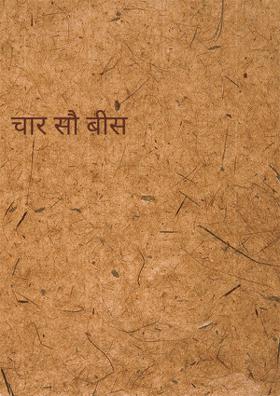 चार सौ बीस